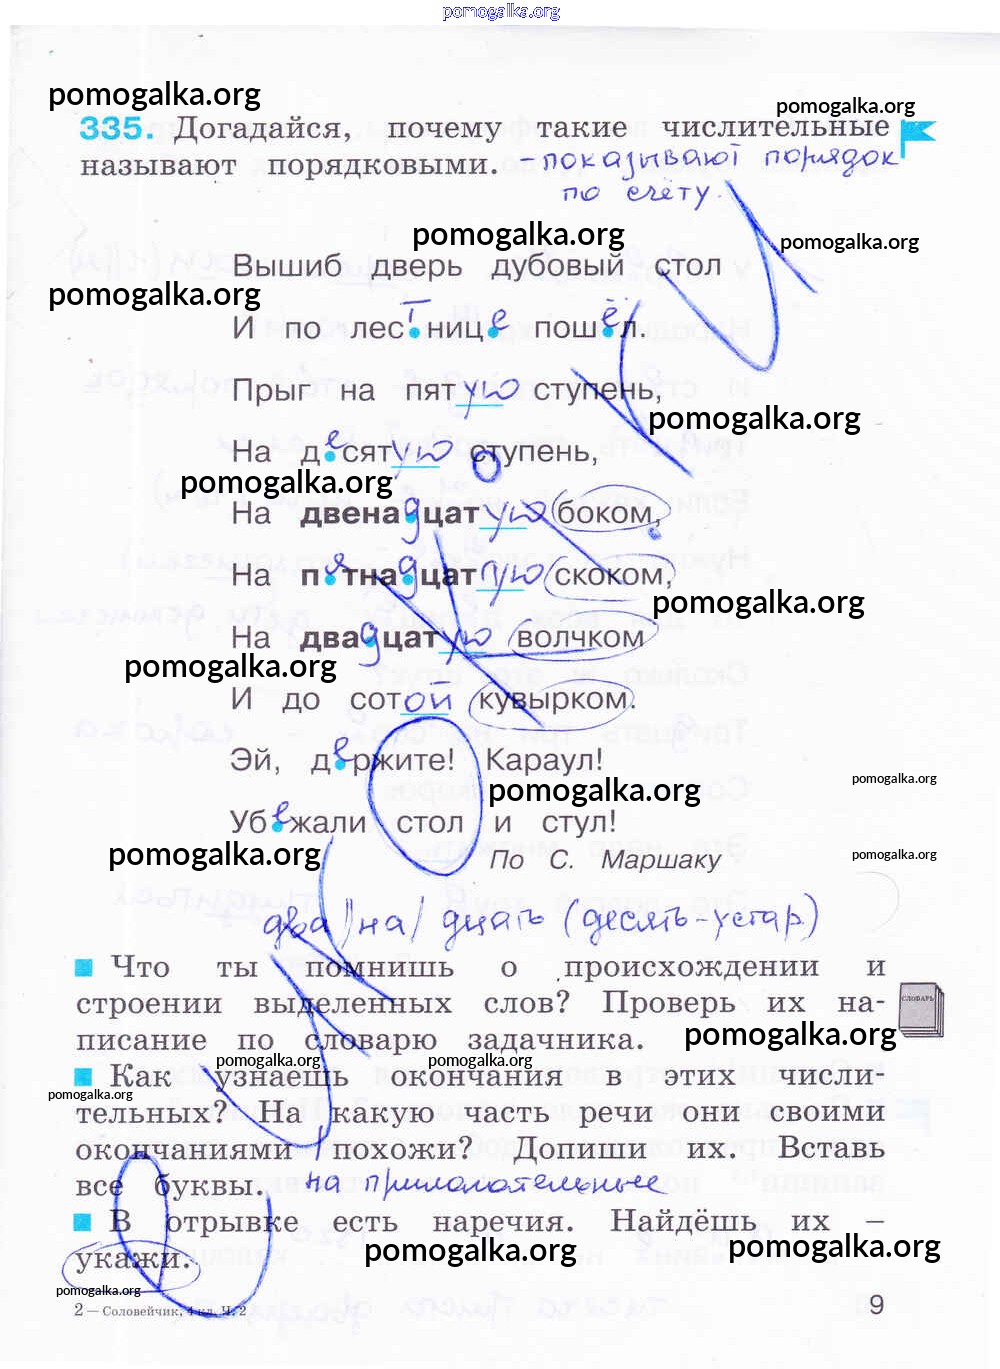 pomogalka.org
pomogalka.org
pomogalka.org
335. Догадайся, почему такие числительные
называют порядковыми. - показывают порядок
по счёту.
pomogalka.org
pomogalka.org
Вышиб дверь дубовый стол
pomogalka.org
И по лестнице пошёл.
Прыг на пятую ступень,
pomogalka.org
На десятую ступень,
pomogalka.org
На двенадцатую боком,
На пятнадцатую скоком,
pomogalka.org
На двадцатую волчком
pomogalka.org
И до сотой кувырком.
Эй, держите! Караул!
pomogalka.org
pomogalka.org
Убежали стол и стул!
pomogalka.org
pomogalka.org
По С. Маршаку
два/на/дцать (десять-устар)
Что ты помнишь о происхождении и
строении выделенных слов? Проверь их на-
СЛОВАРЬ
писание по словарю задачника.
pomogalka.org
pomogalka.org
pomogalka.org
Как узнаешь окончания в этих числи-
pomogalka.org
тельных? На какую часть речи они своими
окончаниями похожи? Допиши их. Вставь
все буквы. на прилагательные
В отрывке есть наречия. Найдёшь их –
укажи.
pomogalka.org
pomogalka.org
pomogalka.org
2 – Соловейчик, 4 кл. Ч. 2
9